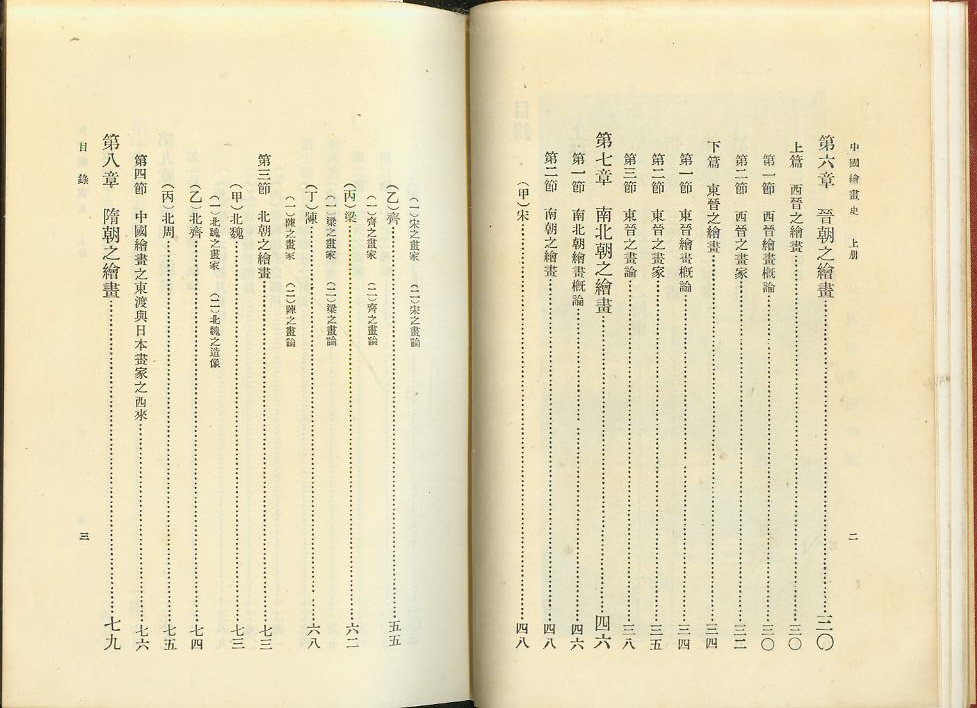 中國繪畫史 上册
二
第六章 晉朝之繪畫……三〇
上篇 西晉之繪畫……三〇
第一節 西晉繪畫概論……三〇
第二節 西晉之畫家……三二
下篇 東晉之繪畫……三四
第一節 東晉繪畫概論……三四
第二節 東晉之畫家……三五
第三節 東晉之畫論……三八
第七章 南北朝之繪畫……四六
第一節 南北朝繪畫概論……四六
第二節 南朝之繪畫……四八
(甲)宋……四八
(一)宋之畫家 (二)宋之畫論
(乙)齊……五五
(一)齊之畫家 (二)齊之畫論
(丙)梁……六二
(一)梁之畫家 (二)梁之畫論
(丁)陳……六八
(一)陳之畫家 (二)陳之畫論
第三節 北朝之繪畫……七三
(甲)北魏……七三
(一)北魏之畫家 (二)北魏之造像
(乙)北齊……七四
(丙)北周……七五
第四節 中國繪畫之東渡與日本畫家之西來……七六
第八章 隋朝之繪畫……七九
目錄
三